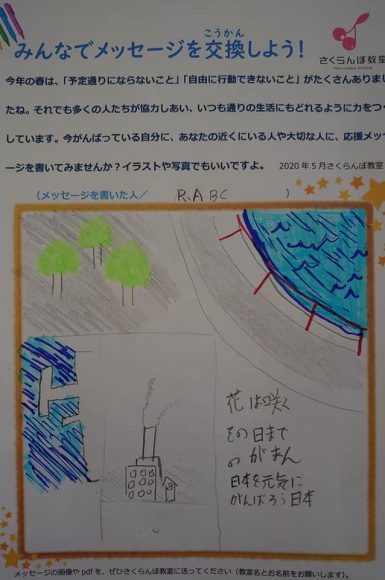 みんなでメッセージを交換しよう！
こうかん
さくらんぼ教室
今年の春は、「予定通りにならないこと」「自由に行動できないこと」がたくさんありまし
たね。それでも多くの人たちが協力しあい、いつも通りの生活にもどれるように力をつく
しています。今がんばっている自分に、あなたの近くにいる人や大切な人に、応援メッセ
ージを書いてみませんか？イラストや写真でもいいですよ。 2020年5月さくらんぼ教室
（メッセージを書いた人／ R.ABC ）
花は咲く
その日まで
のがまん
日本を元気に
がんばろう日本
メッセージの画像やpdfを、ぜひさくらんぼ教室に送ってください（教室名とお名前をお願いします）。